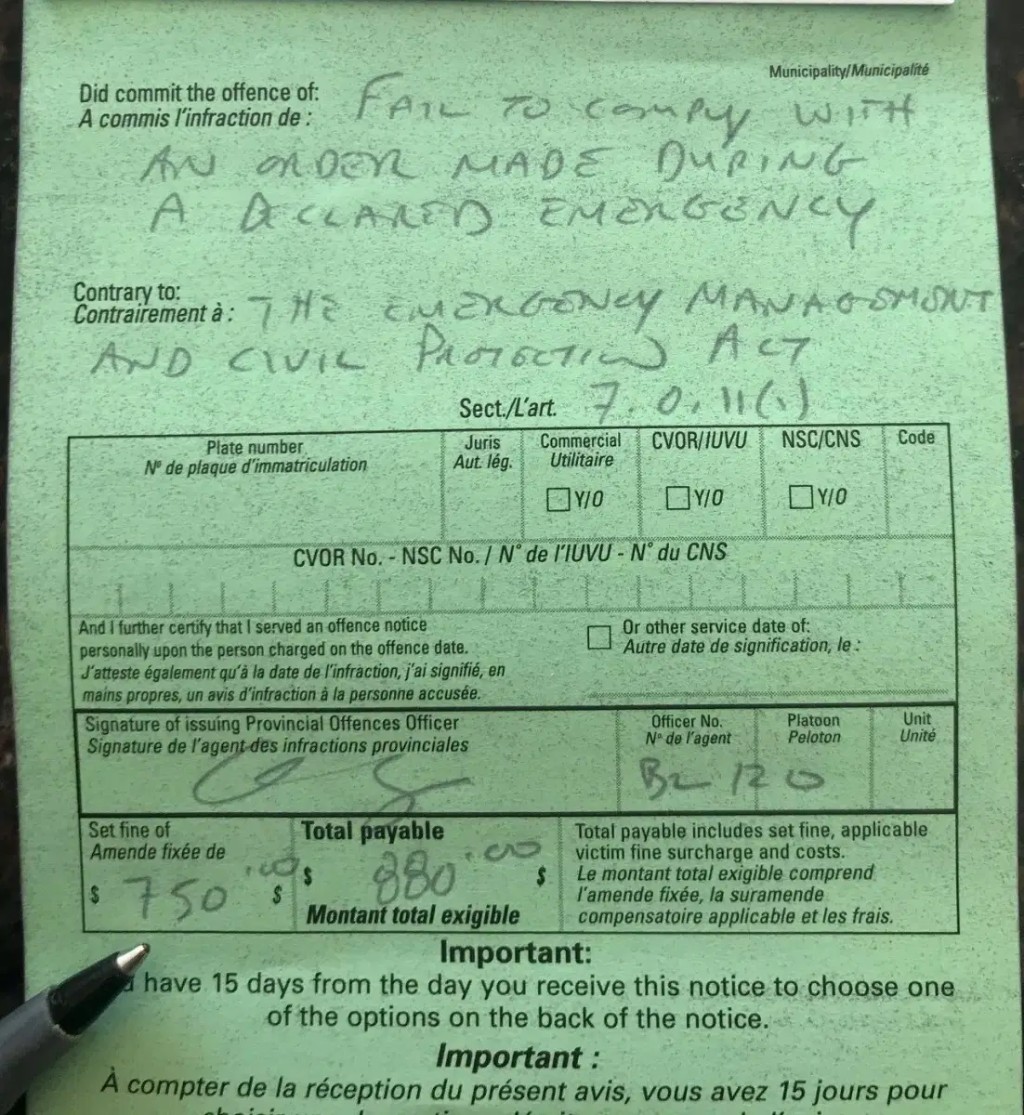 Municipality/Municipalité
Did commit the offence of: FAIL TO COMPLY WITH
A commis l'infraction de :
AN ORDER MADE DURING
A DECLARED EMERGENCY
Contrary to: THE EMERGENCY MANAGEMENT
Contrairement à :
AND CIVIL PROTECTION ACT
Sect./L'art. 7.0.11(1)
Plate number Juris Commercial CVOR/IUVU NSC/CNS Code
N° de plaque d'immatriculation Aut. lég. Utilitaire
Y/O Y/O Y/O
CVOR No. - NSC No. / N° de l'IUVU - N° du CNS
And I further certify that I served an offence notice
personally upon the person charged on the offence date.
J'atteste également qu'à la date de l'infraction, j'ai signifié, en
mains propres, un avis d'infraction à la personne accusée.
Or other service date of:
Autre date de signification, le :
Signature of issuing Provincial Offences Officer Officer No. Platoon Unit
Signature de l'agent des infractions provinciales N° de l'agent Peloton Unité
BL 120
Set fine of
Amende fixée de
$ 750.00 $
Total payable
$ 880.00 $
Montant total exigible
Total payable includes set fine, applicable
victim fine surcharge and costs.
Le montant total exigible comprend
l'amende fixée, la suramende
compensatoire applicable et les frais.
Important:
have 15 days from the day you receive this notice to choose one
of the options on the back of the notice.
Important :
À compter de la réception du présent avis, vous avez 15 jours pour